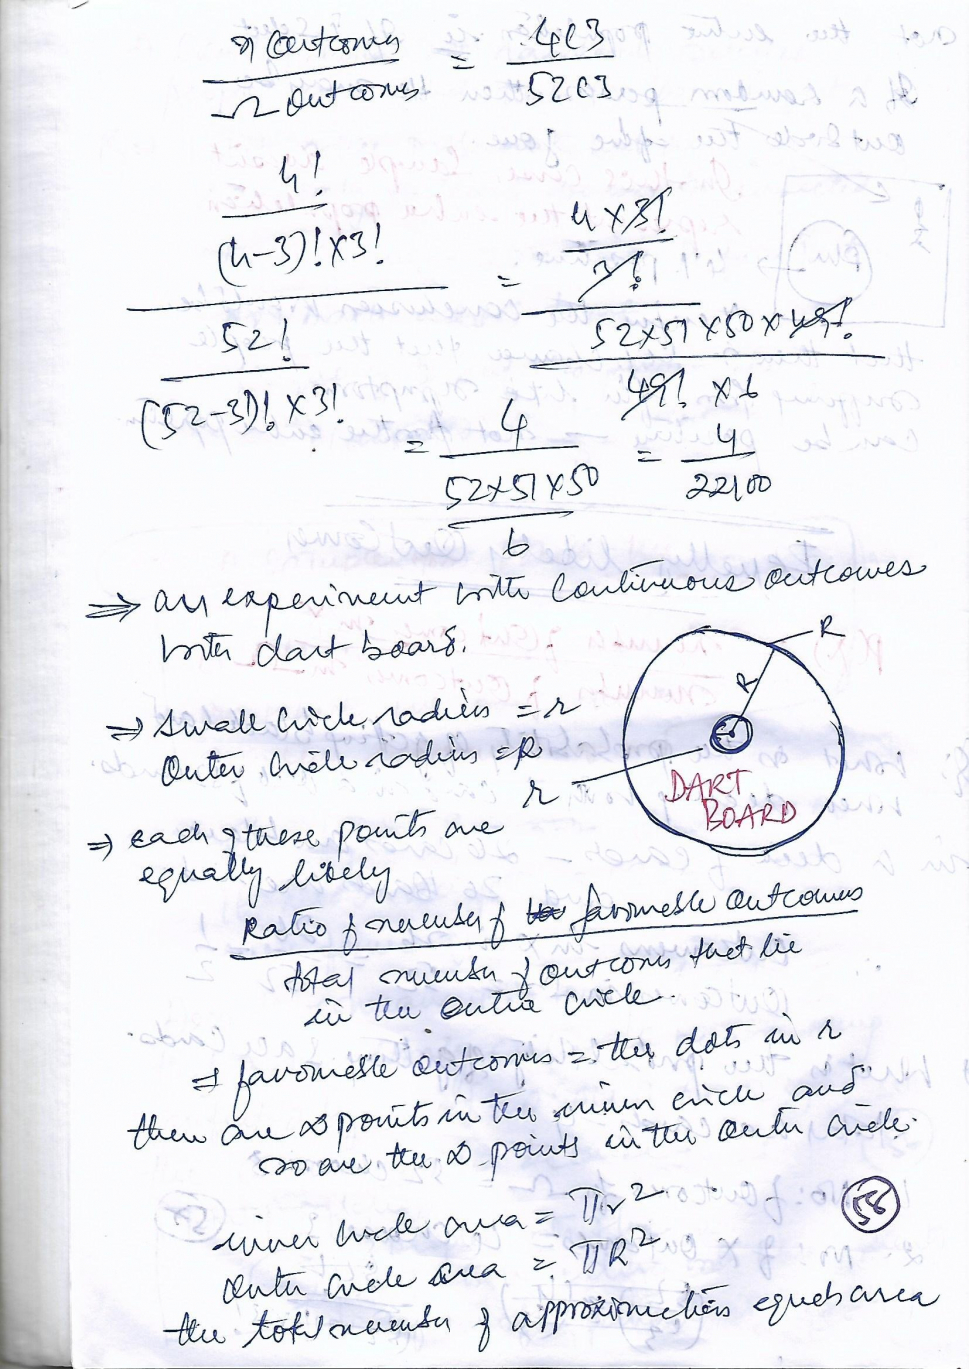 x outcomes / Ω outcomes = 4C3 / 52C3
4! / (4-3)! × 3!
52! / (52-3)! × 3!
= 4 × 3! / 3!
52×51×50×49! / 49! × 6
= 4 / 52×51×50 / 6 = 4 / 22100
⇒ an experiment with continuous outcomes
with dart board.
R
R
⇒ small circle radius = r
Outer circle radius = R
r
DART
BOARD
⇒ each of these points are
equally likely
Ratio of number of favourable outcomes
total number of outcomes that lie
in the entire circle.
⇒ favourable outcomes = the dots in r
there are ∞ points in the inner circle and
so are the ∞ points in the outer circle.
inner circle area = πr²
outer circle area = πR²
58
the total number of approximations equals area